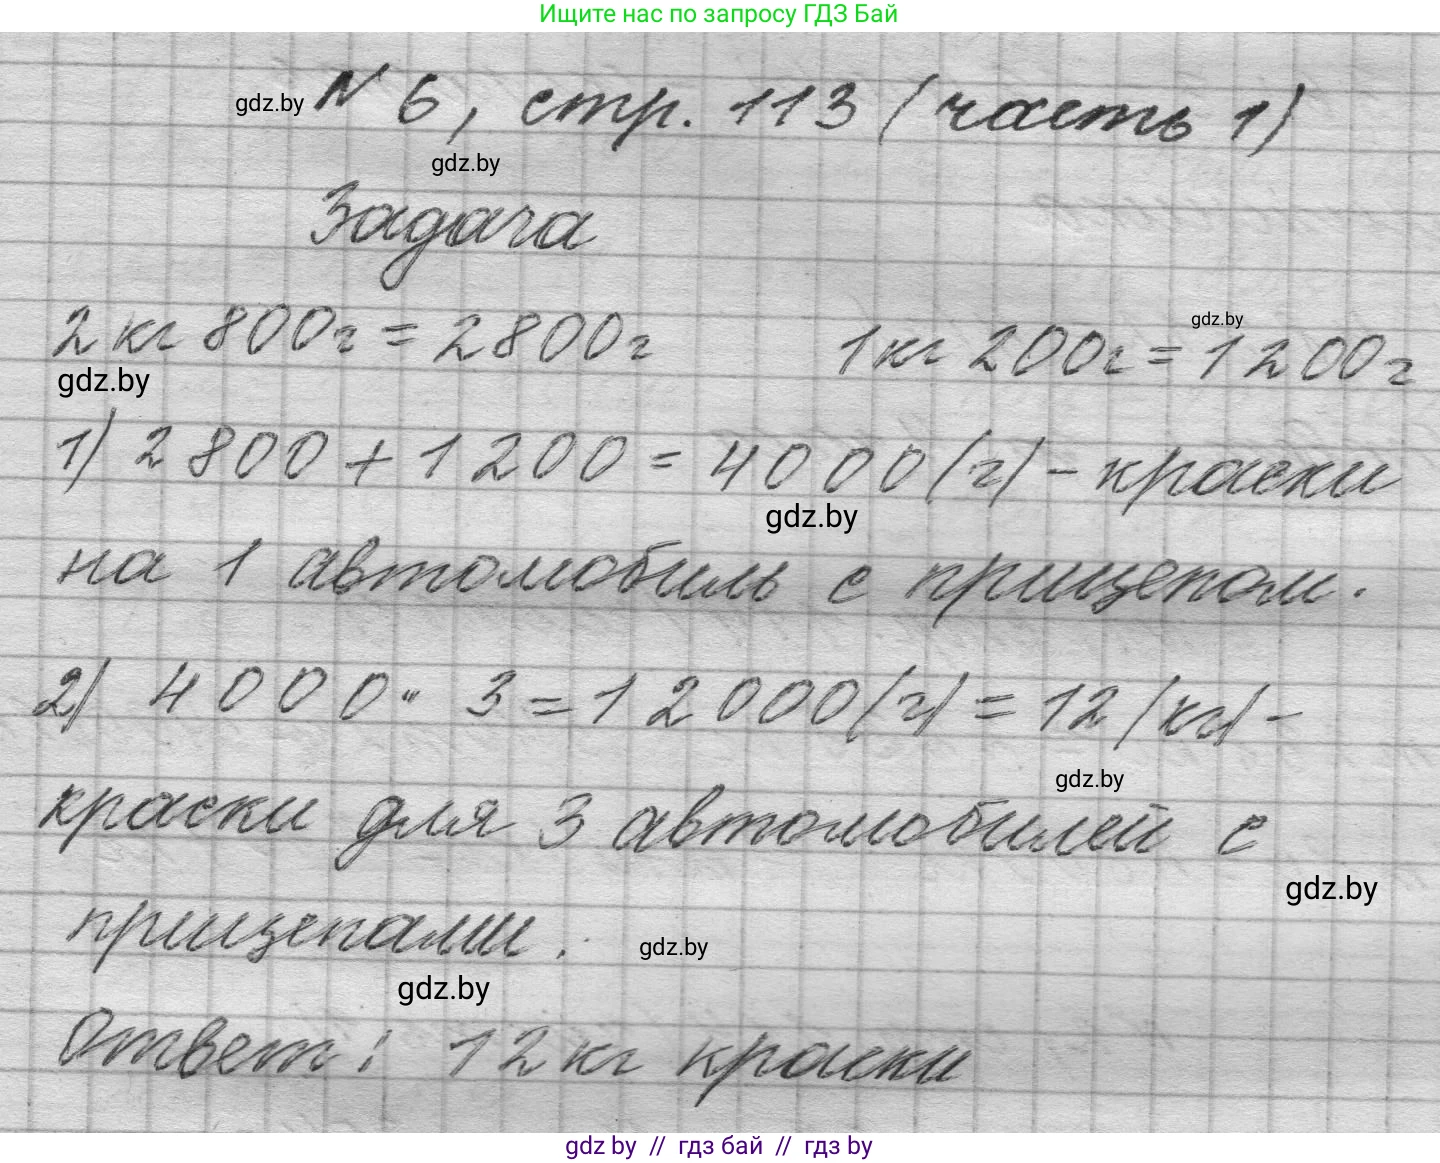 Ищите нас по запросу ГДЗ Бай
gdz.by № 6, стр. 113 (часть 1)
gdz.by
Задача
2 кг 800г = 2800г 1кг 200г = 1200г
gdz.by
gdz.by
1) 2800 + 1200 = 4000 (г) - краски
gdz.by
на 1 автомобиль с прицепом.
2) 4000 · 3 = 12000 (г) = 12 (кг) -
gdz.by
краски для 3 автомобилей с
gdz.by
прицепами.
gdz.by
gdz.by
Ответ: 12 кг краски
gdz.by // гдз бай // гдз by